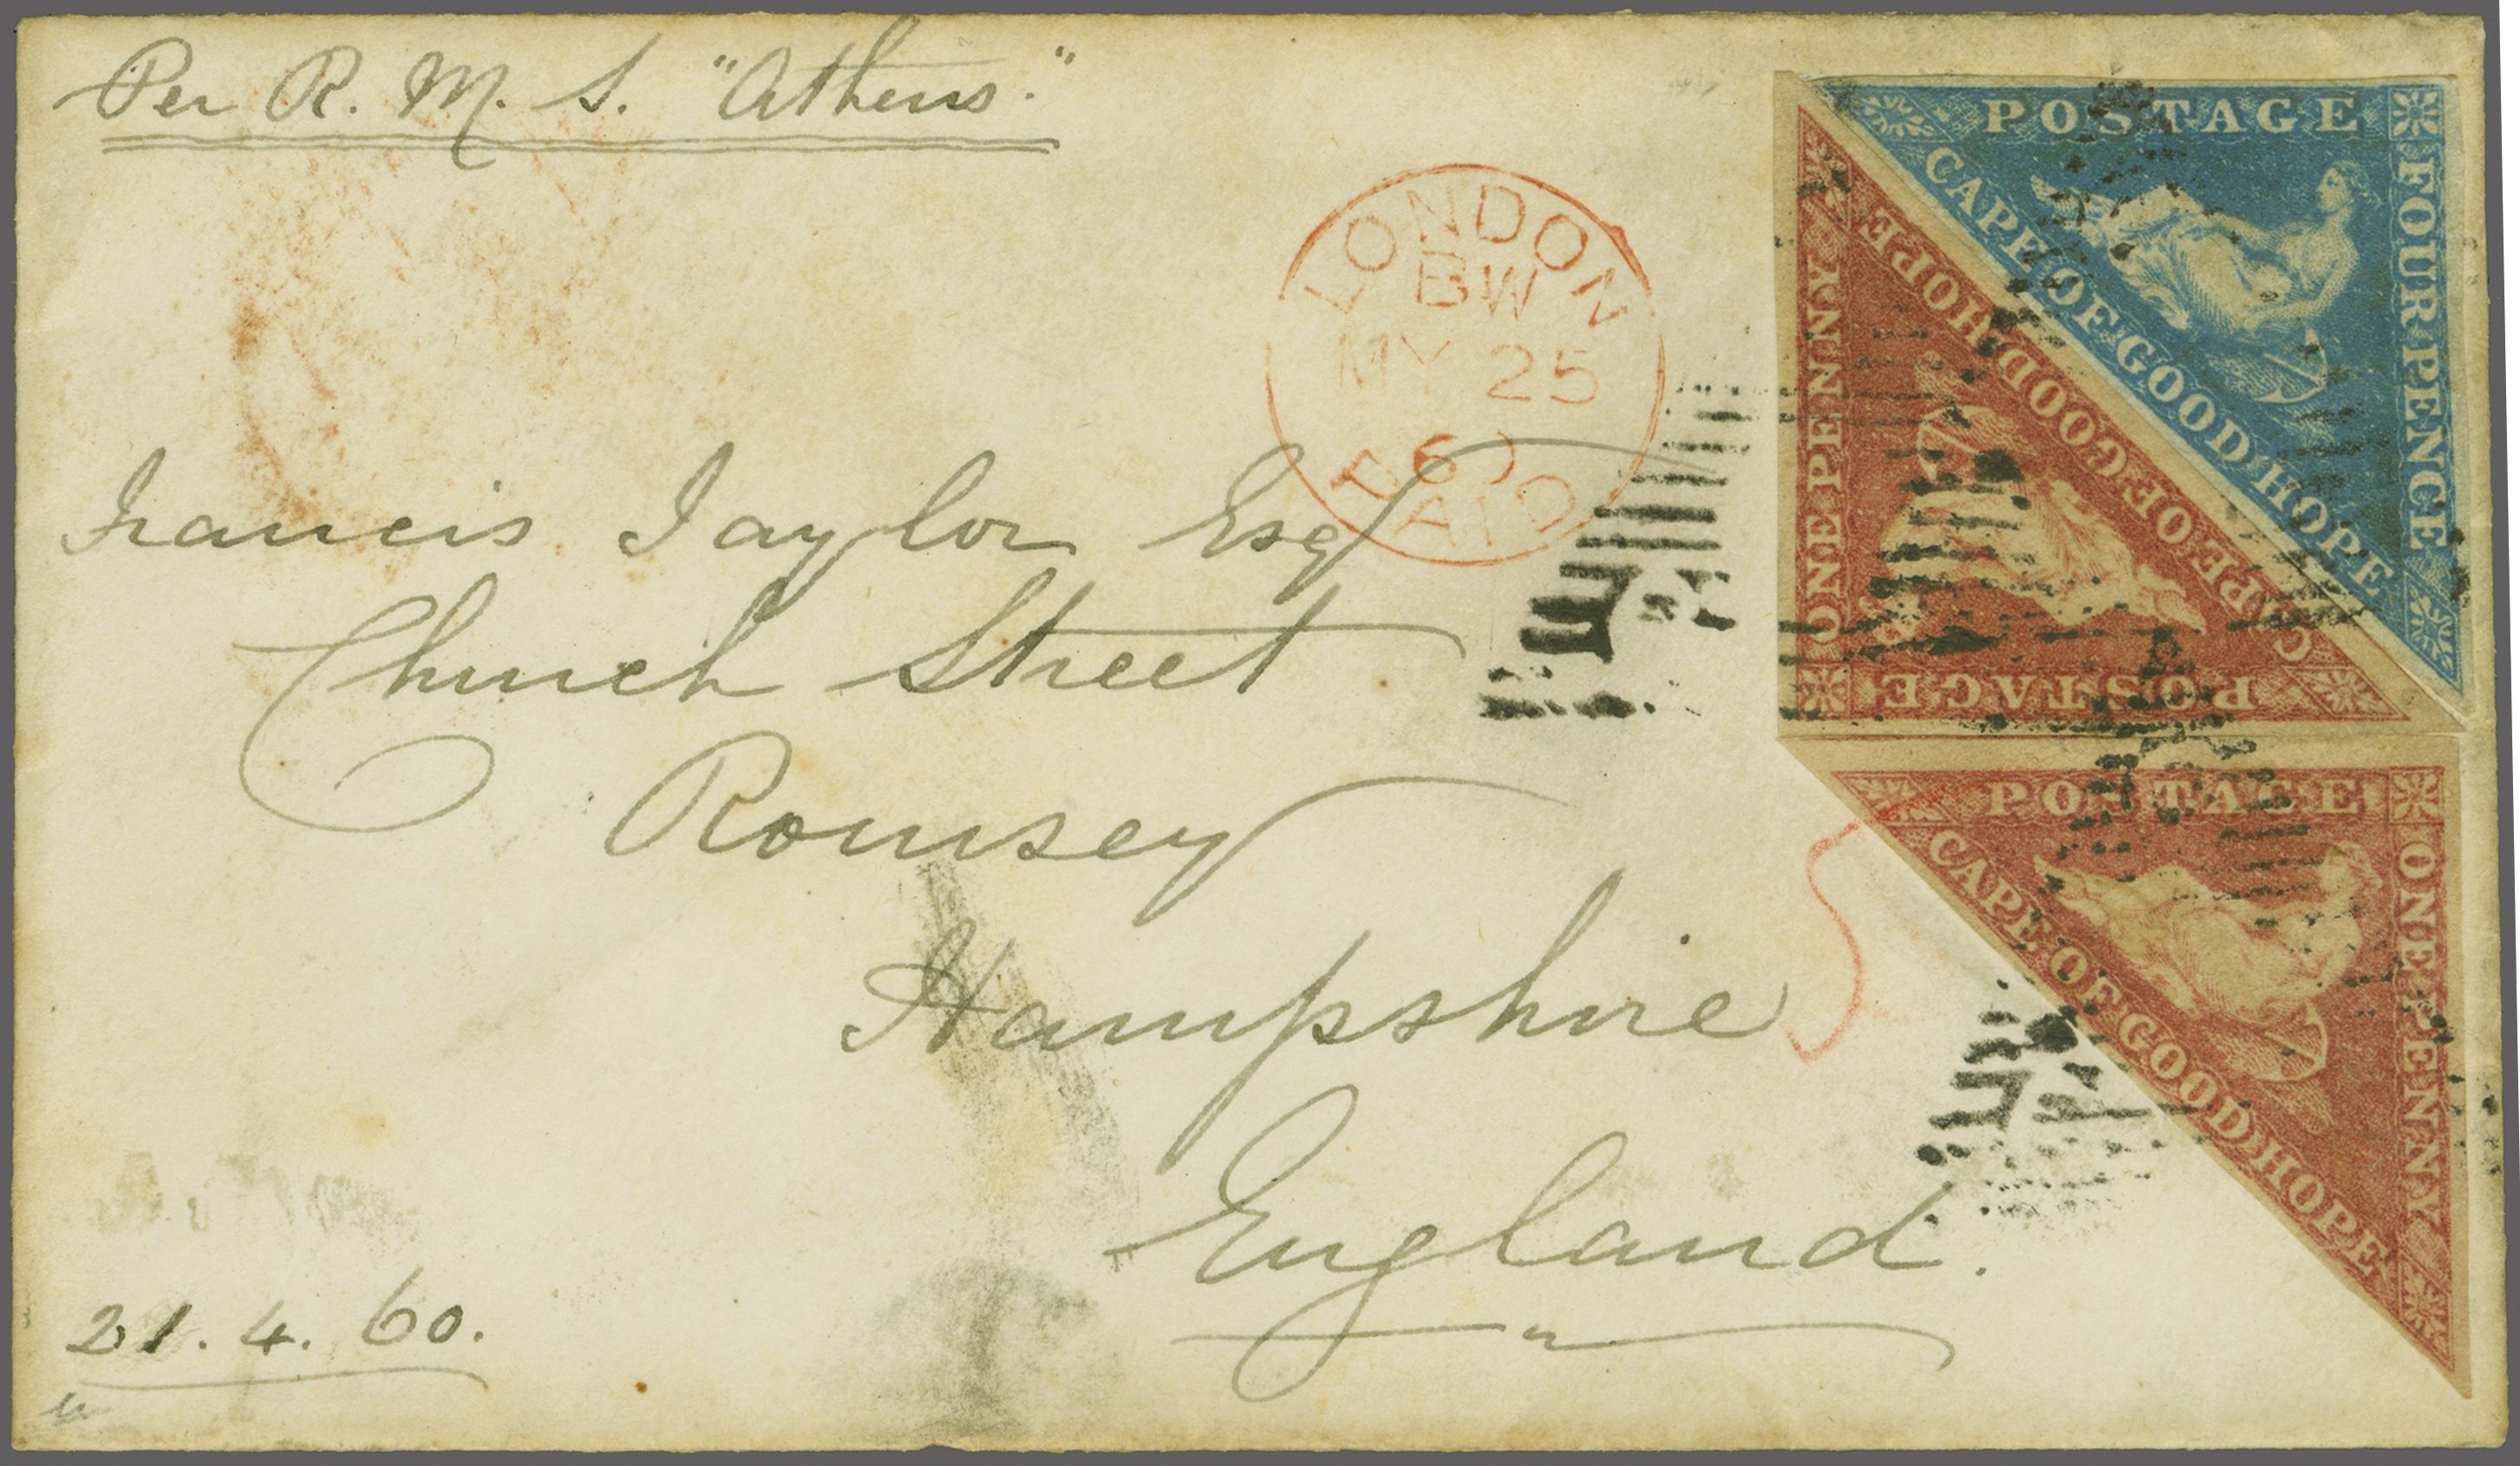 Per R. M. S. "Athens."
LONDON
BW
MY 25
60
PAID
Francis Taylor Esq
Church Street
Romsey
Hampshire
England.
21. 4. 60.
POSTAGE
FOUR PENCE
CAPE OF GOOD HOPE
ONE PENNY
CAPE OF GOOD HOPE
POSTAGE
POSTAGE
ONE PENNY
CAPE OF GOOD HOPE